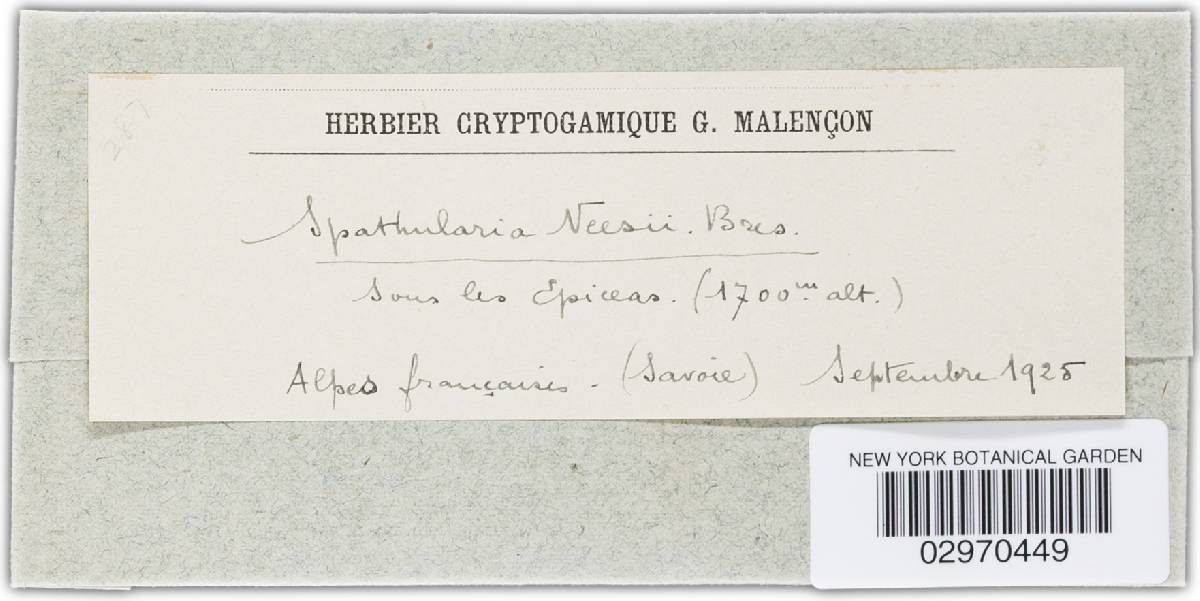 287
HERBIER CRYPTOGAMIQUE G. MALENÇON
Spathularia Neesii. Bres.
Sous les Epiceas. (1700m. alt.)
Alpes françaises - (Savoie) Septembre 1925
NEW YORK BOTANICAL GARDEN
02970449